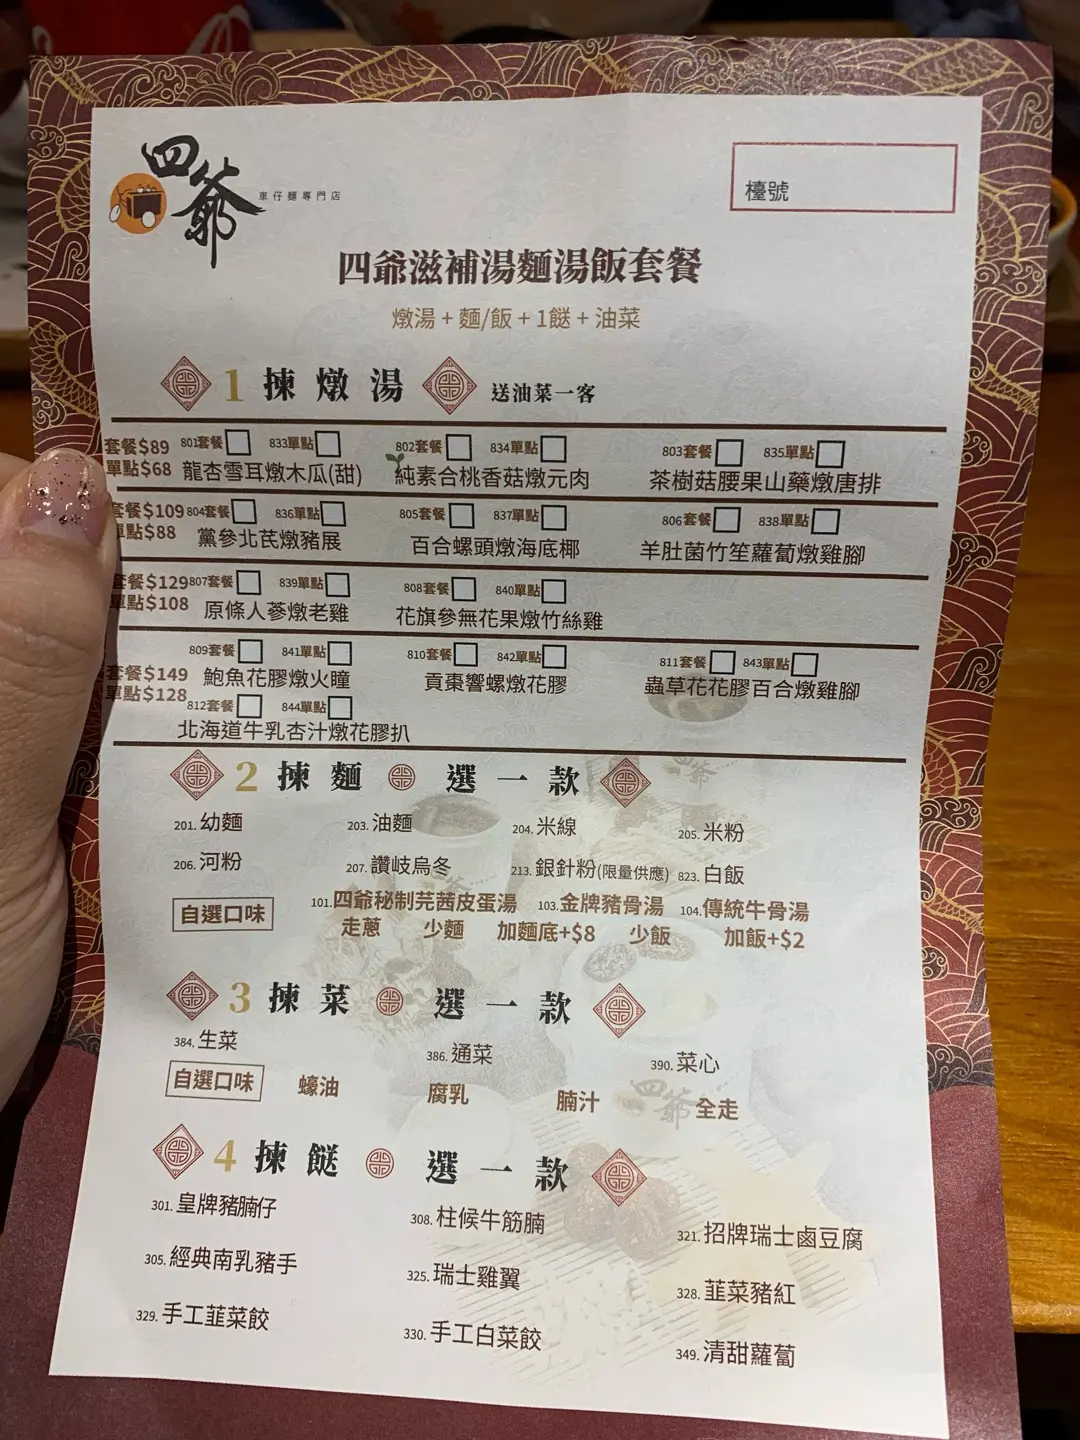 四爺
車仔麵專門店
檯號
四爺滋補湯麵湯飯套餐
燉湯 + 麵/飯 + 1餸 + 油菜
1 揀燉湯 送油菜一客
套餐$89 801套餐 833單點 802套餐 834單點 803套餐 835單點
單點$68 龍杏雪耳燉木瓜(甜) 純素合桃香菇燉元肉 茶樹菇腰果山藥燉唐排
套餐$109 804套餐 836單點 805套餐 837單點 806套餐 838單點
單點$88 黨參北芪燉豬展 百合螺頭燉海底椰 羊肚菌竹笙蘿蔔燉雞腳
套餐$129 807套餐 839單點 808套餐 840單點
單點$108 原條人蔘燉老雞 花旗參無花果燉竹絲雞
809套餐 841單點 810套餐 842單點 811套餐 843單點
套餐$149 鮑魚花膠燉火瞳 貢棗響螺燉花膠 蟲草花花膠百合燉雞腳
單點$128 812套餐 844單點
北海道牛乳杏汁燉花膠扒
2 揀麵 選一款
201. 幼麵 203. 油麵 204. 米線 205. 米粉
206. 河粉 207. 讚岐烏冬 213. 銀針粉(限量供應) 823. 白飯
自選口味 101. 四爺秘制芫茜皮蛋湯 103. 金牌豬骨湯 104. 傳統牛骨湯
走蔥 少麵 加麵底+$8 少飯 加飯+$2
3 揀菜 選一款
384. 生菜 386. 通菜 390. 菜心
自選口味 蠔油 腐乳 腩汁 全走
4 揀餸 選一款
301. 皇牌豬腩仔 308. 柱候牛筋腩 321. 招牌瑞士鹵豆腐
305. 經典南乳豬手 325. 瑞士雞翼 328. 韮菜豬紅
329. 手工韮菜餃 330. 手工白菜餃 349. 清甜蘿蔔